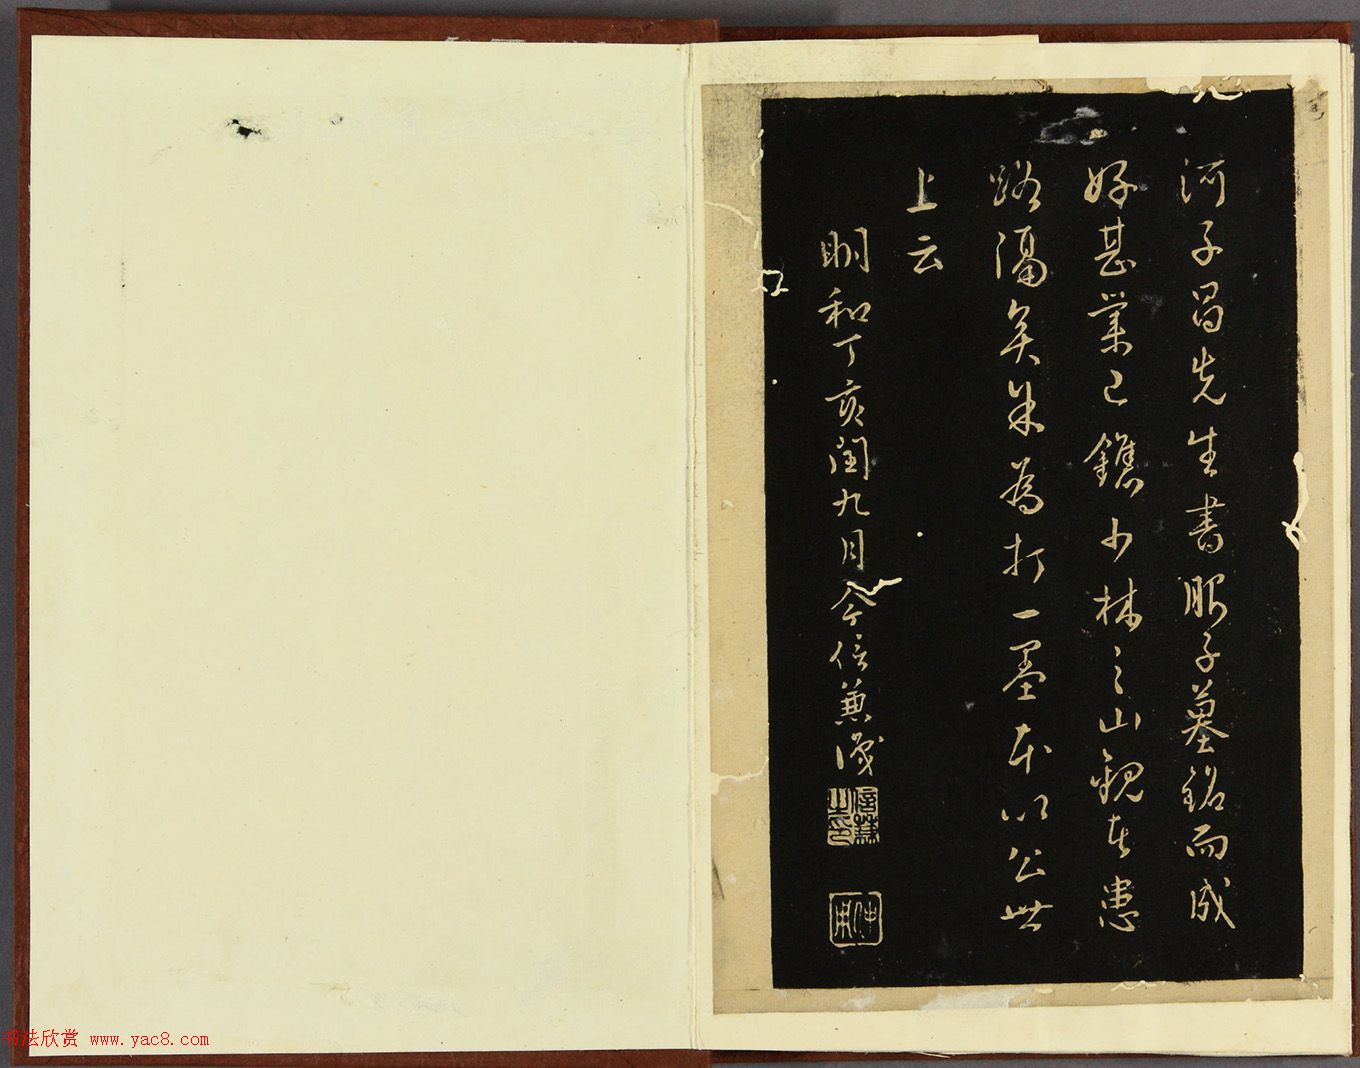 河子昌先生書服子墓銘而成
好甚業已鐫少林之山觀者患
路隔矣米為打一墨本以公世
上云
明和丁亥閏九月今信兼識
信兼之印
书法欣赏 www.yac8.com